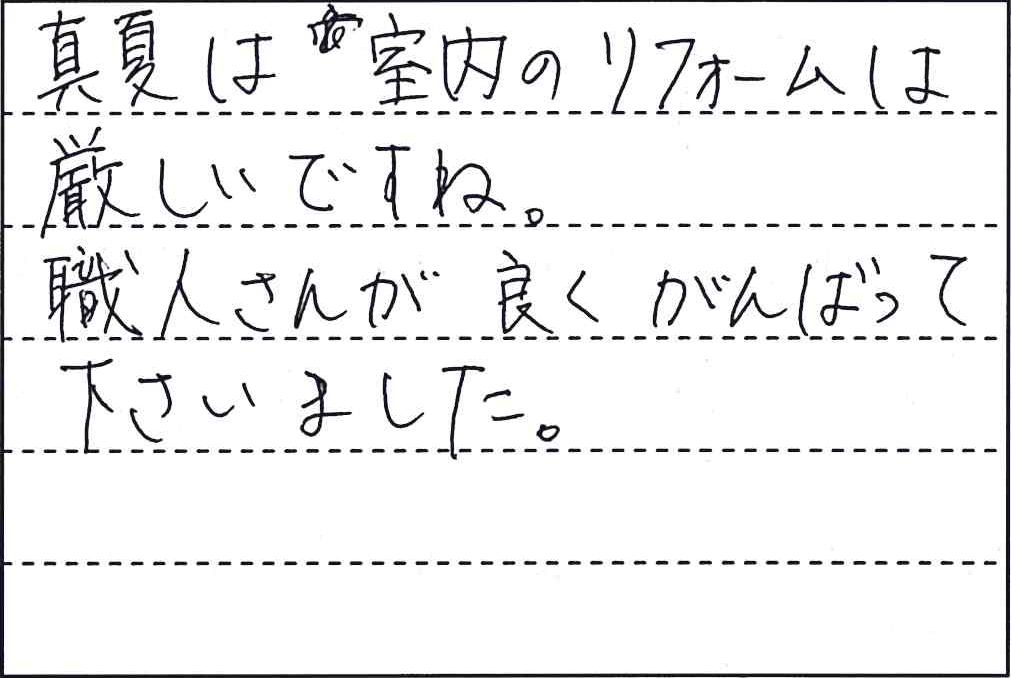 真夏は室内のリフォームは
厳しいですね。
職人さんが良くがんばって
下さいました。